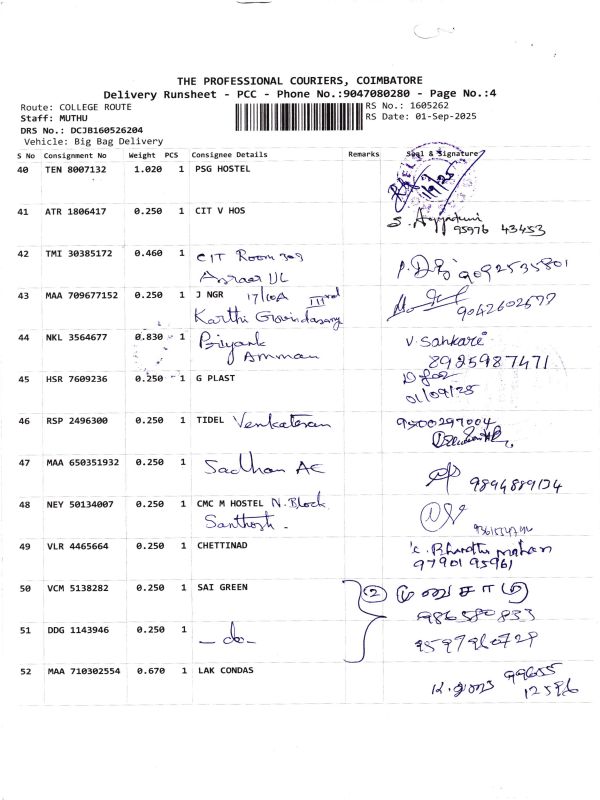 THE PROFESSIONAL COURIERS, COIMBATORE
Delivery Runsheet - PCC - Phone No.:9047080280 - Page No.:4
Route: COLLEGE ROUTE RS No.: 1605262
Staff: MUTHU RS Date: 01-Sep-2025
DRS No.: DCJB160526204
Vehicle: Big Bag Delivery
S No Consignment No Weight PCS Consignee Details Remarks Seal & Signature
40 TEN 8007132 1.020 1 PSG HOSTEL 1/9/25
41 ATR 1806417 0.250 1 CIT V HOS
95976 43453
42 TMI 30385172 0.460 1 CIT Room 309
9092535801
43 MAA 709677152 0.250 1 J NGR 17/10A IIIrd
Karthi Govindasamy 9042602577
44 NKL 3564677 0.830 1 Priyank V. Sahkari
Amman 8925987471
45 HSR 7609236 0.250 1 G PLAST
01/09/25
46 RSP 2496300 0.250 1 TIDEL Venkatesan 9500297004
47 MAA 650351932 0.250 1 Sadhan AC 9894889124
48 NEY 50134007 0.250 1 CMC M HOSTEL N. Block
Santhosh.
49 VLR 4465664 0.250 1 CHETTINAD
9790195961
50 VCM 5138282 0.250 1 SAI GREEN 2 முனுசாமி
986580833
51 DDG 1143946 0.250 1 -do-
9597960729
52 MAA 710302554 0.670 1 LAK CONDAS 99655
12596